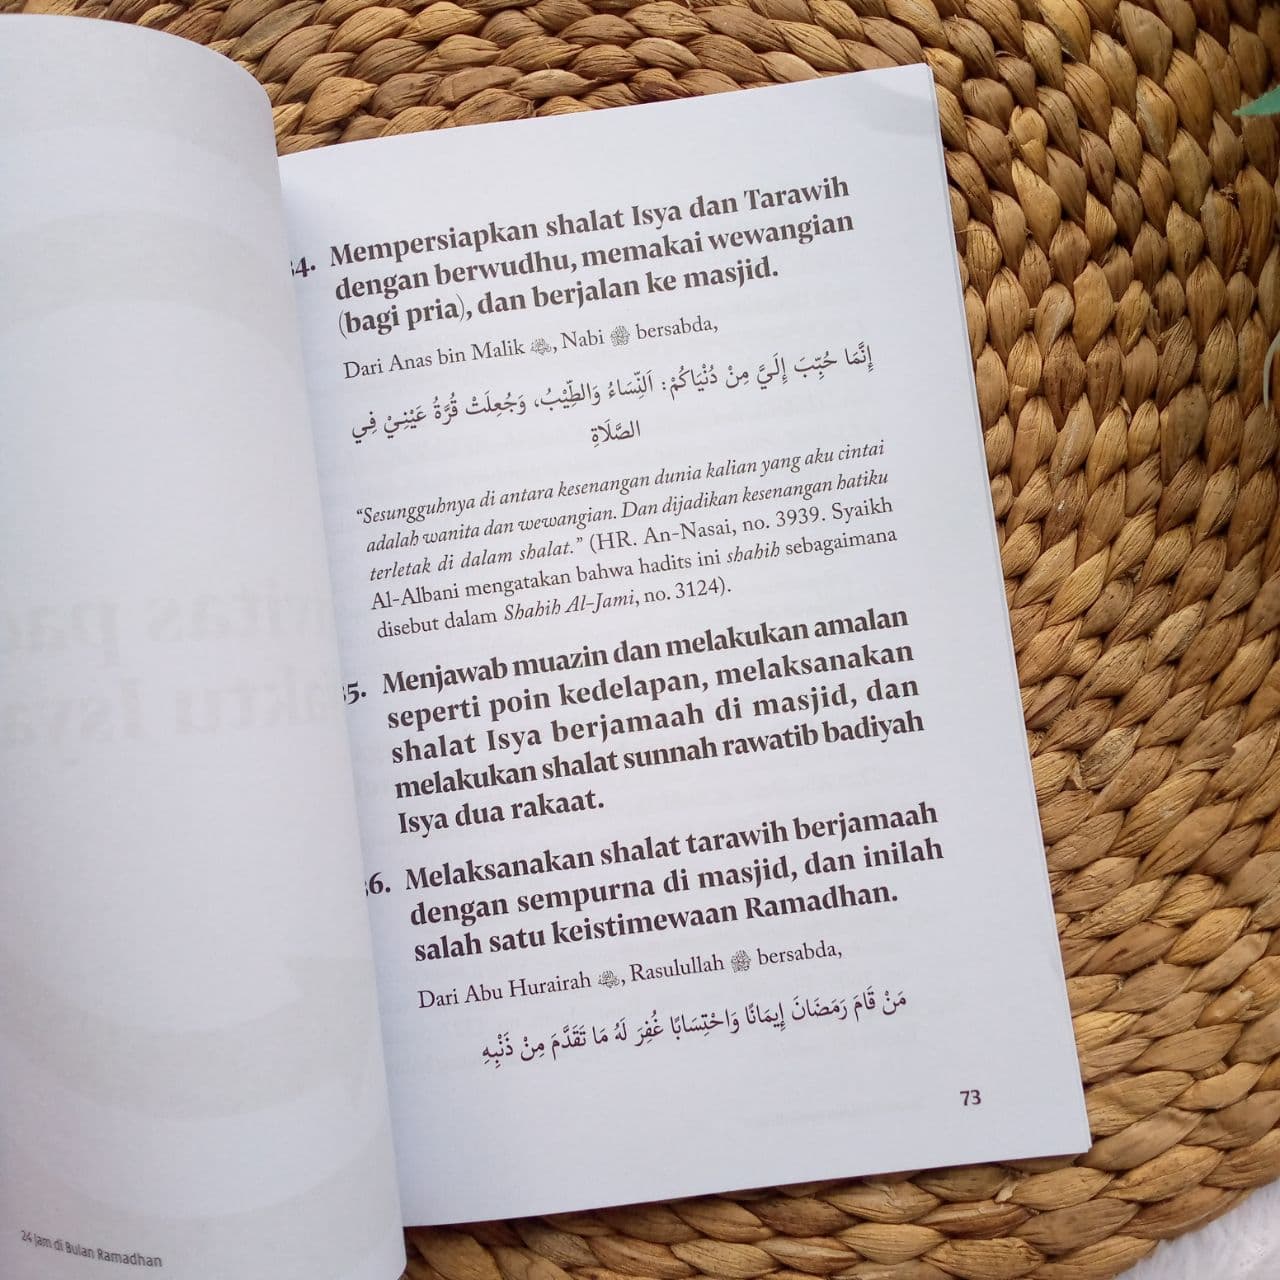 24 Jam di Bulan Ramadhan
4. Mempersiapkan shalat Isya dan Tarawih
dengan berwudhu, memakai wewangian
(bagi pria), dan berjalan ke masjid.
Dari Anas bin Malik ؓ, Nabi ﷺ bersabda,
إِنَّمَا حُبِّبَ إِلَيَّ مِنْ دُنْيَاكُمْ: اَلنِّسَاءُ وَالطِّيْبُ، وَجُعِلَتْ قُرَّةُ عَيْنِيْ فِي
الصَّلَاةِ
“Sesungguhnya di antara kesenangan dunia kalian yang aku cintai
adalah wanita dan wewangian. Dan dijadikan kesenangan hatiku
terletak di dalam shalat.” (HR. An-Nasai, no. 3939. Syaikh
Al-Albani mengatakan bahwa hadits ini shahih sebagaimana
disebut dalam Shahih Al-Jami, no. 3124).
5. Menjawab muazin dan melakukan amalan
seperti poin kedelapan, melaksanakan
shalat Isya berjamaah di masjid, dan
melakukan shalat sunnah rawatib badiyah
Isya dua rakaat.
6. Melaksanakan shalat tarawih berjamaah
dengan sempurna di masjid, dan inilah
salah satu keistimewaan Ramadhan.
Dari Abu Hurairah ؓ, Rasulullah ﷺ bersabda,
مَنْ قَامَ رَمَضَانَ إِيمَانًا وَاحْتِسَابًا غُفِرَ لَهُ مَا تَقَدَّمَ مِنْ ذَنْبِهِ
73